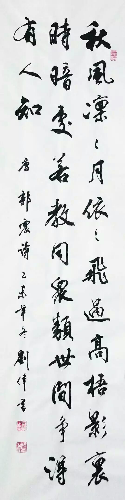 秋風凜〻月依〻飛過高梧影裏
時暗處若教同眾類世間爭得
有人知
唐郭震詩乙未年冬劉偉書